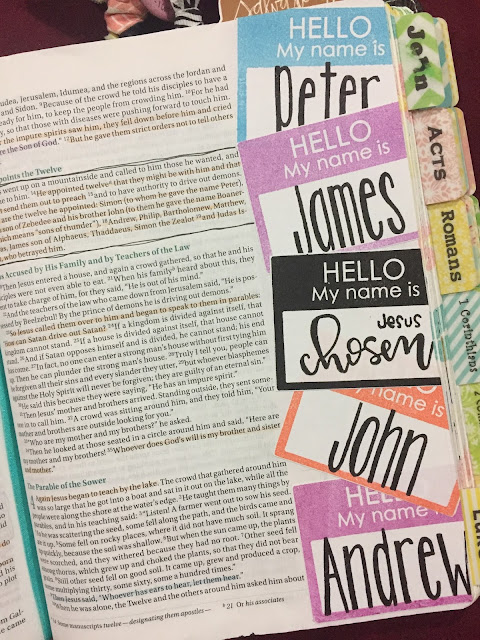 udea, Jerusalem, Idumea, and the regions across the Jordan and
and Sidon. 9Because of the crowd he told his disciples to have a
ready for him, to keep the people from crowding him. 10For he had
y, so that those with diseases were pushing forward to touch him.
the impure spirits saw him, they fell down before him and cried
e the Son of God." 12But he gave them strict orders not to tell others
points the Twelve
went up on a mountainside and called to him those he wanted, and
e to him. 14He appointed twelve that they might be with him and that
send them out to preach 15and to have authority to drive out demons.
are the twelve he appointed: Simon (to whom he gave the name Peter),
son of Zebedee and his brother John (to them he gave the name Boaner-
which means "sons of thunder"), 18Andrew, Philip, Bartholomew, Matthew,
James son of Alphaeus, Thaddaeus, Simon the Zealot 19and Judas Is-
who betrayed him.
s Accused by His Family and by Teachers of the Law
Then Jesus entered a house, and again a crowd gathered, so that he and his
ciples were not even able to eat. 21When his family heard about this, they
nt to take charge of him, for they said, "He is out of his mind."
And the teachers of the law who came down from Jerusalem said, "He is pos-
essed by Beelzebul! By the prince of demons he is driving out demons."
So Jesus called them over to him and began to speak to them in parables:
ow can Satan drive out Satan? 24If a kingdom is divided against itself, that
kingdom cannot stand. 25If a house is divided against itself, that house cannot
and. 26And if Satan opposes himself and is divided, he cannot stand; his end
come. 27In fact, no one can enter a strong man's house without first tying him
up. Then he can plunder the strong man's house. 28Truly I tell you, people can
forgiven all their sins and every slander they utter, 29but whoever blasphemes
against the Holy Spirit will never be forgiven; they are guilty of an eternal sin."
He said this because they were saying, "He has an impure spirit."
Then Jesus' mother and brothers arrived. Standing outside, they sent some-
one in to call him. 32A crowd was sitting around him, and they told him, "Your
mother and brothers are outside looking for you."
"Who are my mother and my brothers?" he asked.
Then he looked at those seated in a circle around him and said, "Here are
my mother and my brothers! 35Whoever does God's will is my brother and sister
and mother."
The Parable of the Sower
4 Again Jesus began to teach by the lake. The crowd that gathered around him
was so large that he got into a boat and sat in it out on the lake, while all the
people were along the shore at the water's edge. 2He taught them many things by
parables, and in his teaching said: 3"Listen! A farmer went out to sow his seed.
As he was scattering the seed, some fell along the path, and the birds came and
ate it up. 5Some fell on rocky places, where it did not have much soil. It sprang
up quickly, because the soil was shallow. 6But when the sun came up, the plants
were scorched, and they withered because they had no root. 7Other seed fell
among thorns, which grew up and choked the plants, so that they did not bear
grain. 8Still other seed fell on good soil. It came up, grew and produced a crop,
some multiplying thirty, some sixty, some a hundred times."
Then Jesus said, "Whoever has ears to hear, let them hear."
When he was alone, the Twelve and the others around him asked him about
Some manuscripts twelve — designating them apostles —
b 21 Or his associates
HELLO
My name is
Peter
HELLO
My name is
James
HELLO
My name is
Jesus
chosen
HELLO
My name is
John
HELLO
My name
Andrew
John
Acts
Romans
1 Corinthians